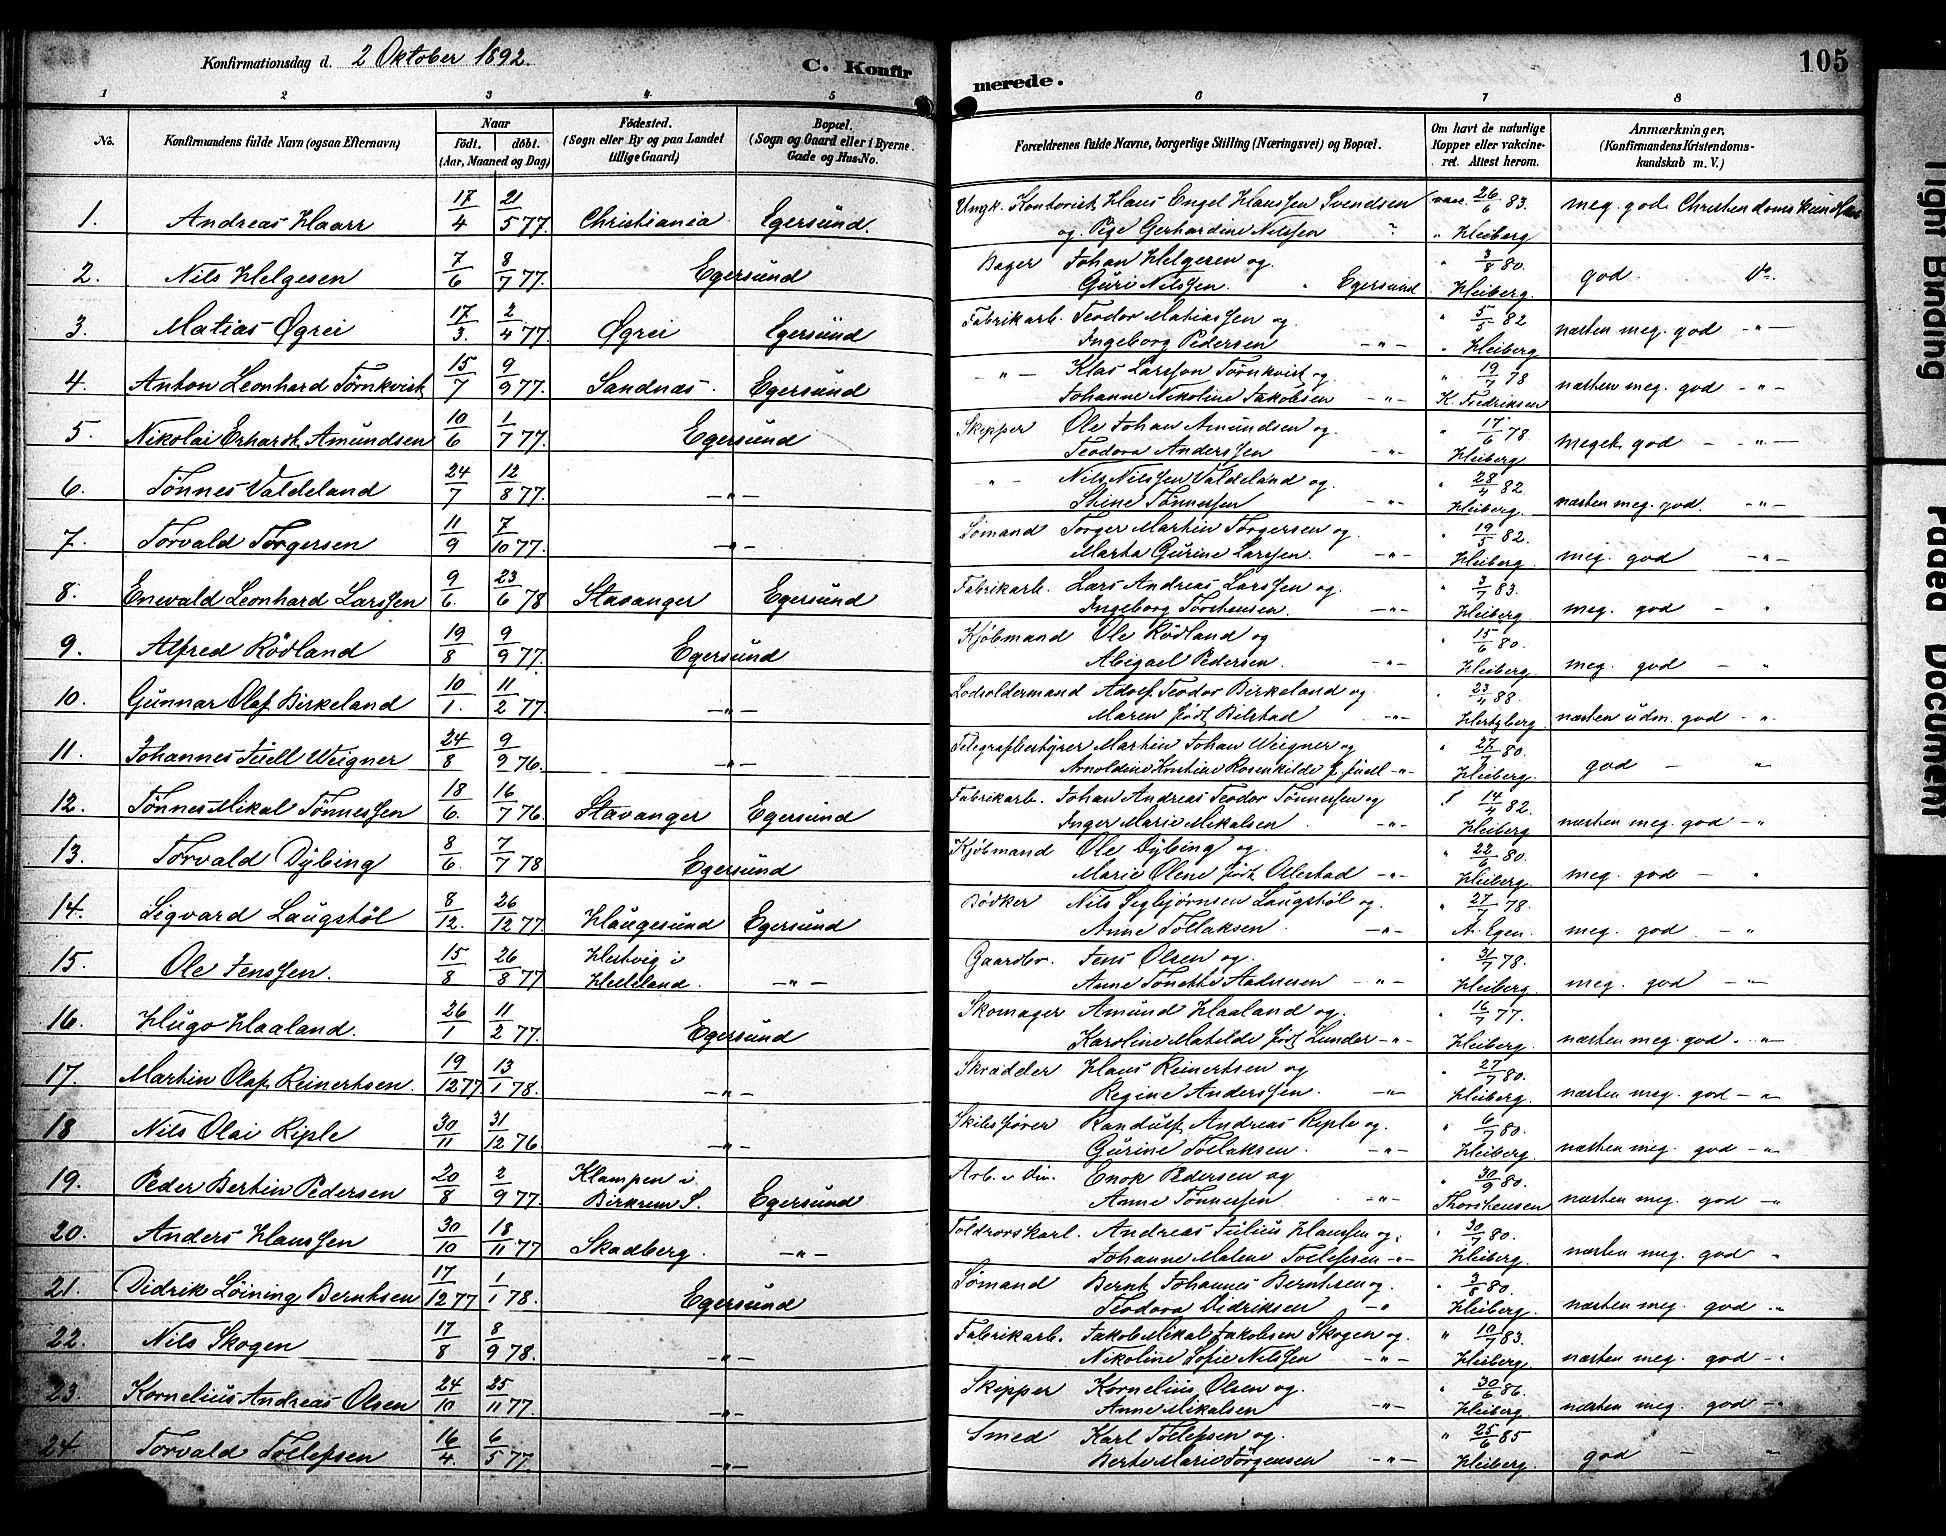 Konfirmationsdag d. 2 Oktober 1892. C. Konfir merede. 105
1 2 3 4. 5 6 7 8
No. Konfirmandens fulde Navn (ogsaa Efternavn) Naar født. døbt. (Aar, Maaned og Dag) Fødested. (Sogn eller By og paa Landet tillige Gaard) Bopæl. (Sogn og Gaard eller i Byerne Gade og Hus-No. Forældrenes fulde Navne, borgerlige Stilling (Næringsvei) og Bopæl. Om havt de naturlige Kopper eller vakcineret. Attest herom. Anmærkninger, (Konfirmandens Kristendomskundskab m. V.)
1. Andreas Haarr 17/4 21/5 77. Christiania Egersund. Ungk. Kontorist Hans Engel Hanssen Svendsen vacc. 26/6 83. meg. god Christendomskundskab
og Pige Gerhardine Nilssen " " Heiberg
2. Nils Helgesen 7/6 8/7 77. Egersund Bager Johan Helgesen og " 3/8 80. god. Do.
Guri Nilssen. " Egersund Heiberg.
3. Matias Øgrei 17/3. 2/4 77. Øgrei Egersund Fabrikarb. Teodor Matiassen og " 5/5 82 næsten meg. god -"-
Ingeborg Pedersen -"- " Heiberg
4. Anton Leonhard Törnkvist 15/7 9/9 77. Sandnæs. Egersund -"- Klas Larsson Törnkvist og " 19/7 78 næsten meg. god -"-
Johanne Nikoline Jakobsen -"- K. Fredriksen
5. Nikolai Erhardt Amundsen 10/6 1/7 77. Egersund Skipper Ole Johan Amundsen og " 17/6 78. meget god - -"-
Teodora Anderssen -"- Heiberg
6. Tönnes Valdeland 24/7 12/8 77. -"- -"- Nils Nilssen Valdeland og " 28/4 82. næsten meg. god. -"-
Stine Tönnessen -"- Heiberg.
7. Torvald Torgersen 11/9 7/10 77. -"- Sømand Torger Martin Torgersen og " 19/5 82. meg. god -"-
Marta Gurine Larssen. -"- Heiberg.
8. Enevald Leonhard Larssen 9/6. 23/6 78 Stavanger Egersund Fabrikarb. Lars Andreas Larssen og " 3/7 83. meg. god - "
Ingeborg Torstensen. -"- Heiberg.
9. Alfred Rödland 19/8 9/9 77. Egersund Kjøbmand Ole Rödland og " 15/6 80. meg. god - "
Abigael Pedersen. -"- Heiberg.
10. Gunnar Olaf Birkeland 10/1. 11/2 77. -"- Lodsoldermand Adolf Teodor Birkeland og " 23/4 88. næsten udm. god - "
Maren født Bilstad -"- Hertzberg
11. Johannes Juell Weigner 24/8 9/9 76. -"- Telegrafbestyrer Martin Johan Weigner og " 27/7 80. god - "
Arnoldine Kristine Rosenkilde f. Juell -"- Heiberg.
12. Tönnes Mikal Tönnessen 18/6. 16/7 76. Stavanger Egersund Fabrikarb. Johan Andreas Teodor Tönnessen og " 14/4 82. næsten meg. god - "
Inger Marie Mikalsen -"- Heiberg
13. Torvald Dybing 8/6. 7/7 78 Egersund Kjøbmand Ole Dybing og " 22/6 80. meg. god - "
Marie Olene født Ollestad -"- Heiberg.
14. Sigvard Laugstöl 8/12. 26/12 77. Haugesund Egersund Bødker Nils Segbjørnsen Laugstöl og " 27/7 78. meg. god. - "
Anne Tollaksen. -"- A. Egen.
15. Ole Jenssen. 15/8 26/8 77 Hestvig i Helleland. -"- Gaardbr. Jens Olsen og " 31/7 78. meg. god -"-
Anne Tonette Aadnesen -"- Heiberg.
16. Hugo Haaland. 26/1 11/2 77. Egersund Skomager Amund Haaland og " 16/7 77. næsten meg. god. -"-
Karoline Matilde født Lunder -"- Heiberg.
17. Martin Olaf Reinertsen. 19/12 77 13/1 78. -"- Skrædder Hans Reinertsen og " 27/7 80. næsten meg. god - "
Regine Anderssen. -"- Heiberg.
18 Nils Olai Riple 30/11 31/12 76. -"- Skibsfører Randulf Andreas Riple og " 6/7 80. næsten meg. god -"-
Gurine Tollaksen. -"- Heiberg.
19. Peder Bertin Pedersen 20/8 2/9 77. Klampen i Birkrem S. Egersund Arb. v Div. Enok Pedersen og " 30/9 80. næsten meg. god -"
Anne Tönnessen -"- Thorstensen
20. Anders Hanssen 30/10 18/11 77 Skadberg. -"- Toldrorskarl. Andreas Julius Hanssen og " 30/7 80. næsten meg. god "
Johanne Malene Tollefsen -"- Heiberg.
21. Didrik Löining Berntsen 17/12 77 1/1 78. Egersund Sømand Bernt Johannes Berntsen og " 3/8 80. næsten meg. god "-
Teodora Didriksen -" Heiberg.
22. Nils Skogen 17/8 8/9 78. -"- Fabrikarb. Jakob Mikal Jakobsen Skogen og " 10/7 83. næsten meg. god -"
Nikoline Sofie Nilssen -"- Heiberg.
23. Kornelius Andreas Olsen 24/10 25/11 77. -"- Skipper Kornelius Olsen og " 30/6 86. næsten meg. god -"
Anne Mikalsen -"- Heiberg.
24. Torvald Tollefsen 16/4. 6/5 77. -"- Smed Karl Tollefsen og " 25/6 85 god - "
Berte Marie Törgensen -"- Heiberg.
Tight Binding
Faded Document